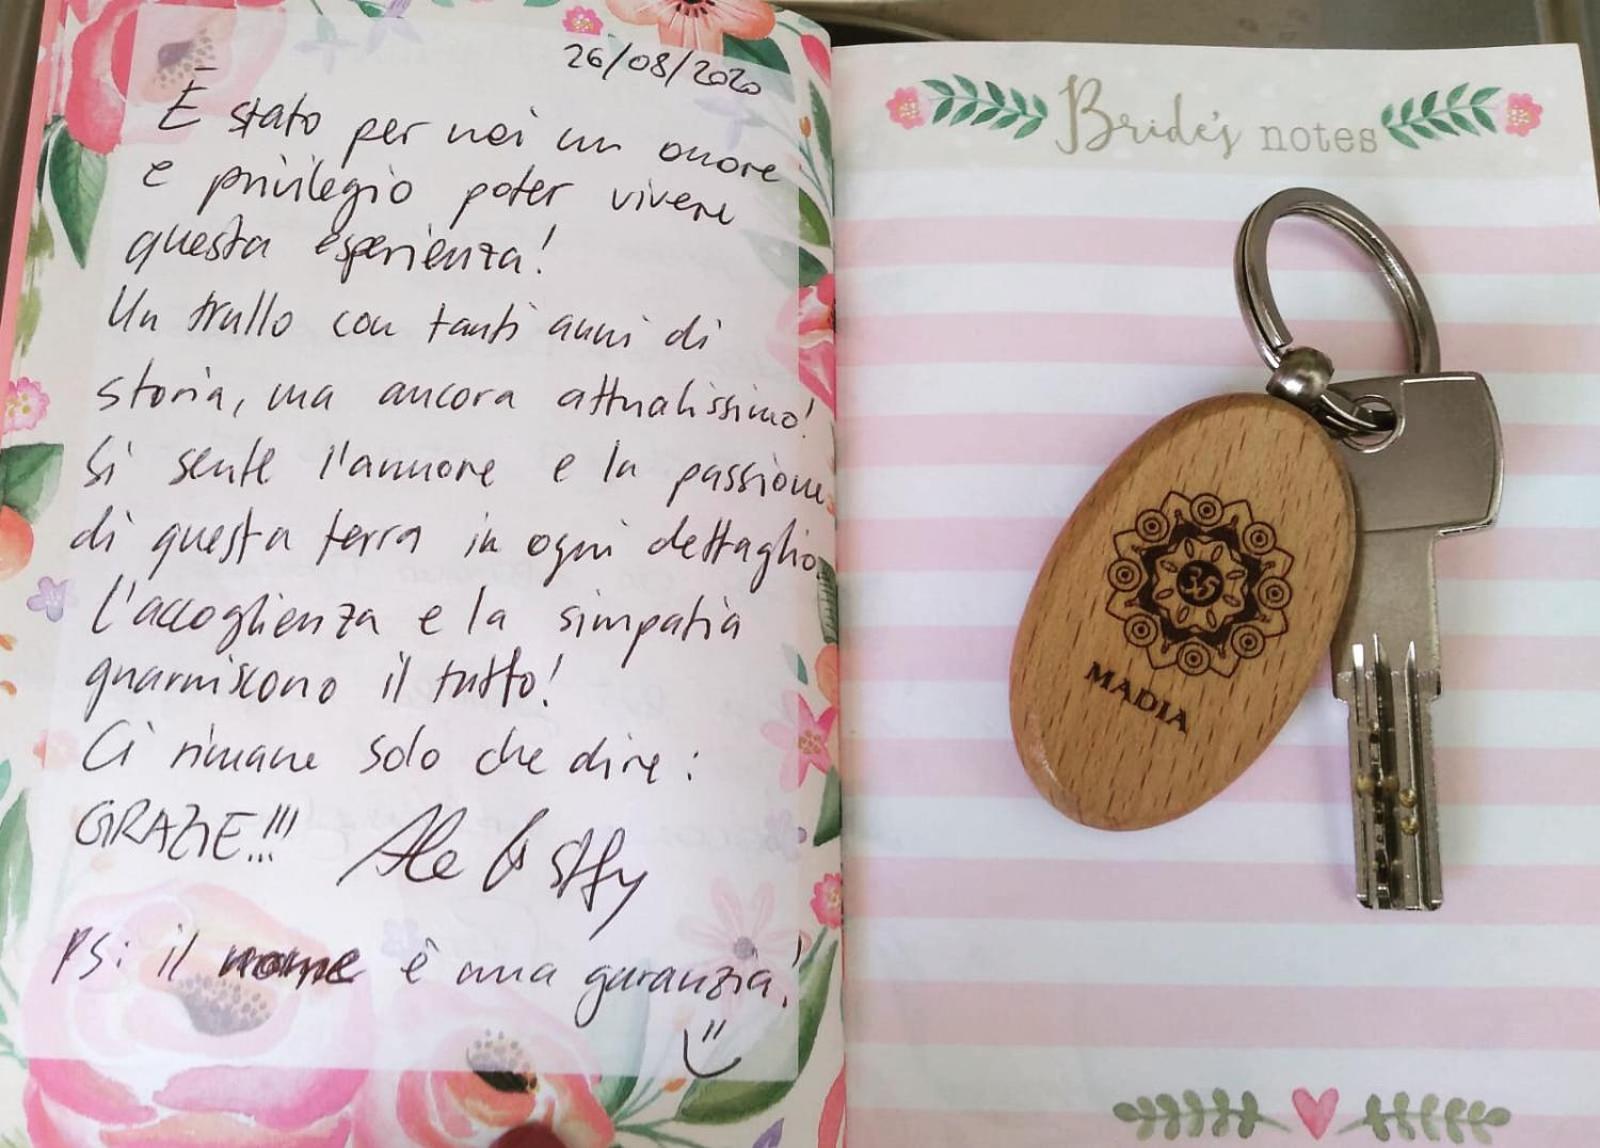 26/08/2020
È stato per noi un onore
e privilegio poter vivere
questa esperienza!
Un trullo con tanti anni di
storia, ma ancora attualissimo!
Si sente l'amore e la passione
di questa terra in ogni dettaglio
L'accoglienza e la simpatia
guarniscono il tutto!
Ci rimane solo che dire:
GRAZIE!!!
Ale & Steffy
PS: il nome è una garanzia!
Bride's notes
35
MADIA